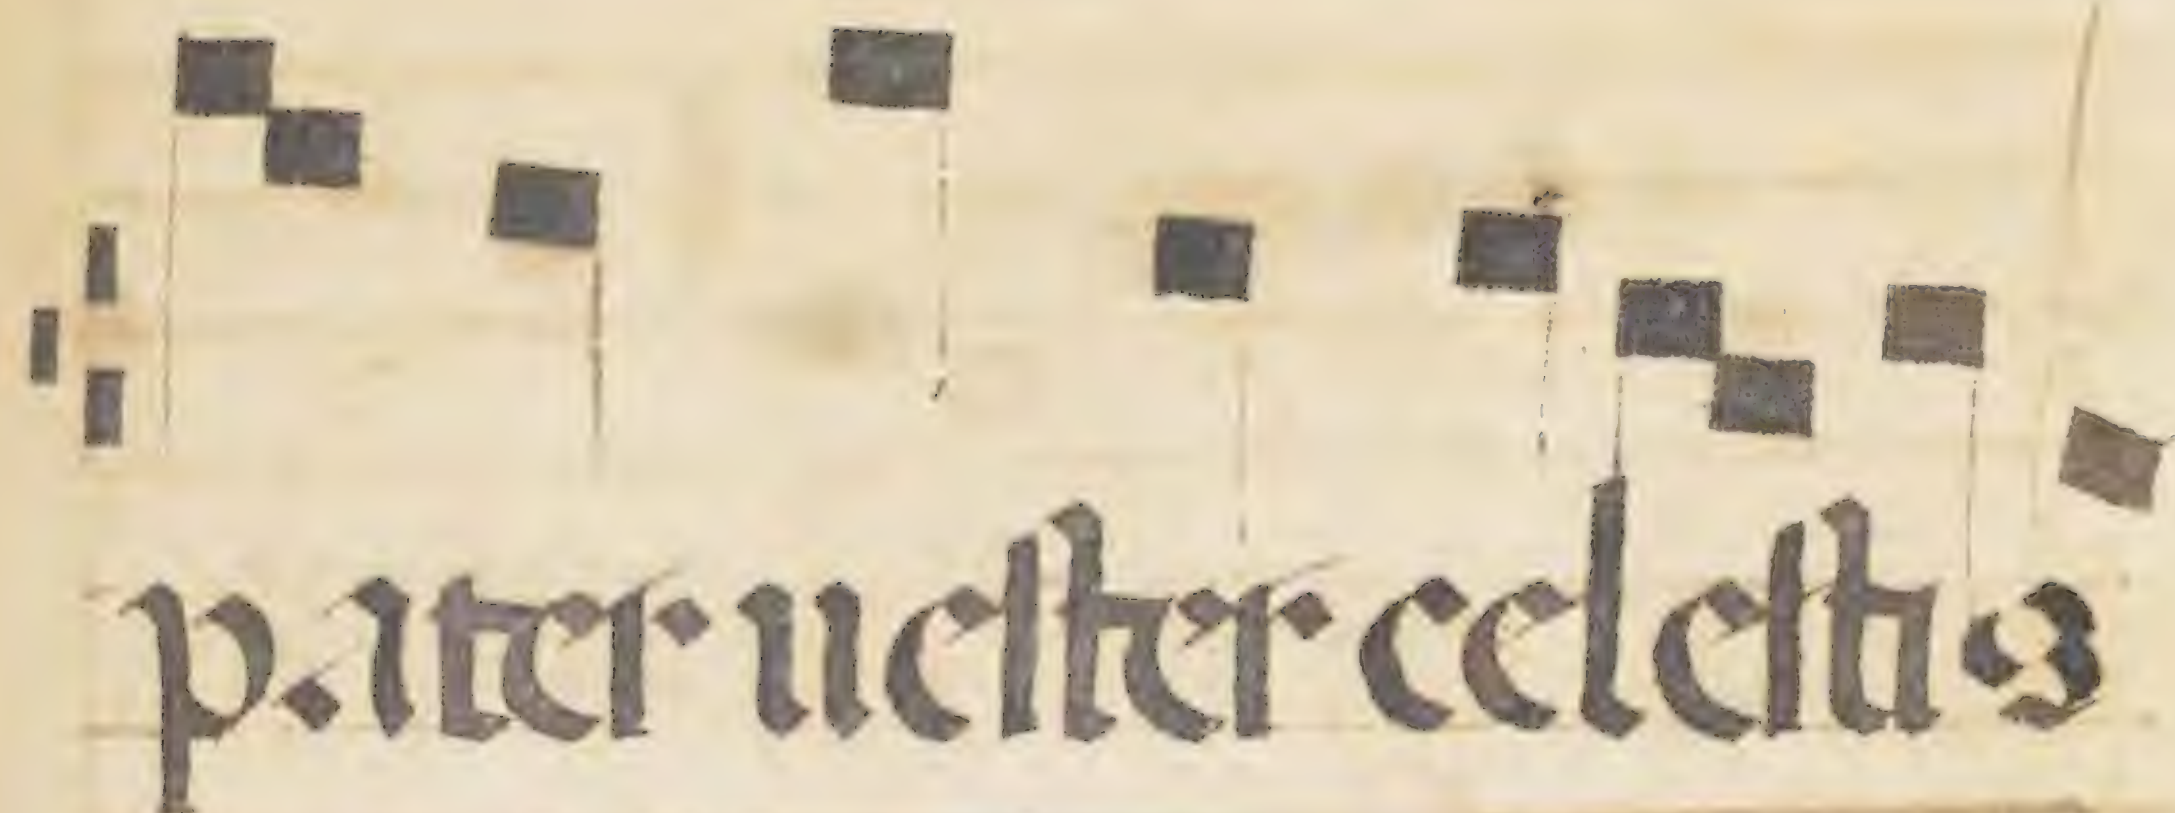 pater uester celestis